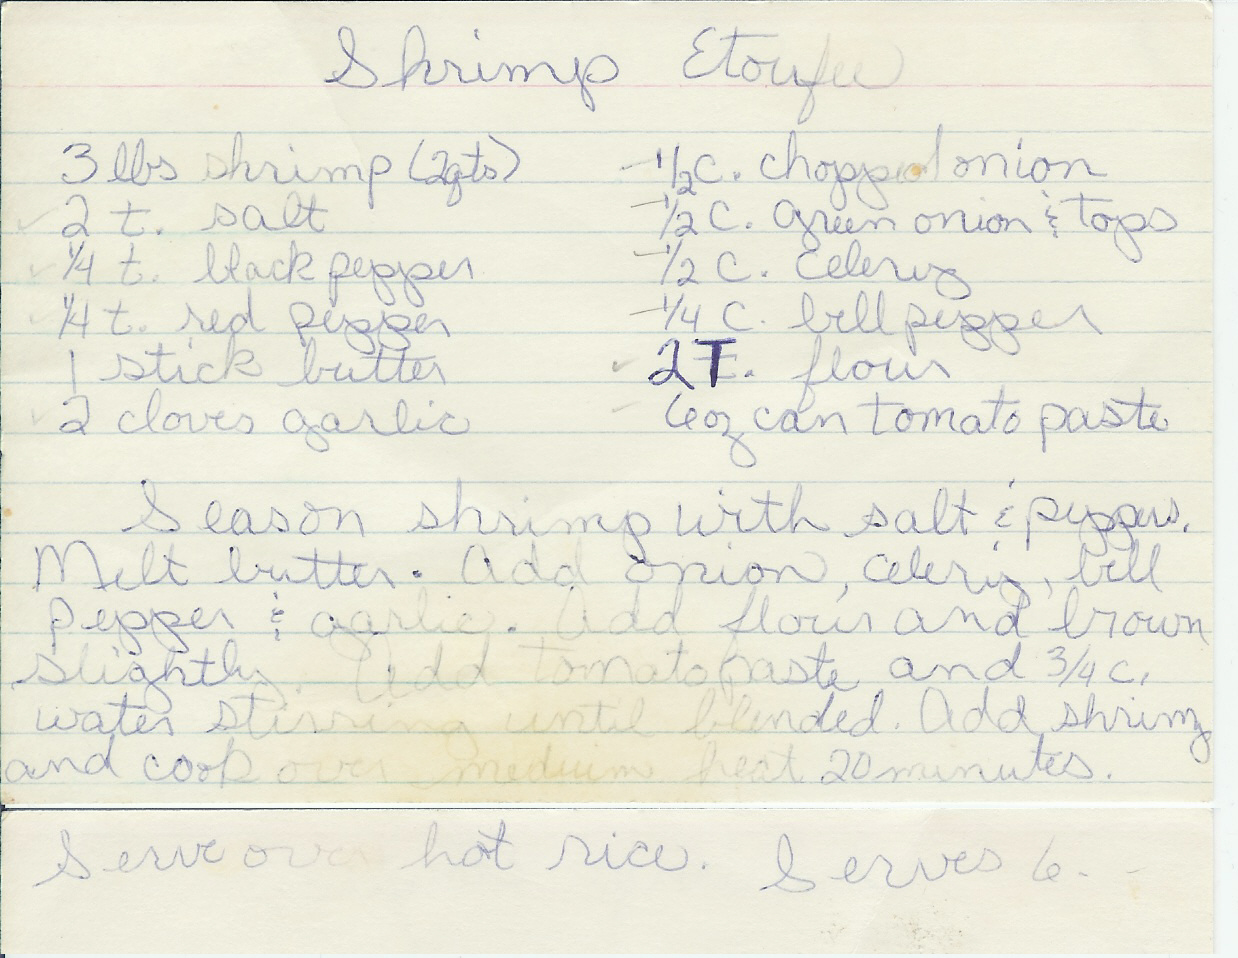 Shrimp Etoufee
3 lbs shrimp (2qts)
2 t. salt
1/4 t. black pepper
1/4 t. red pepper
1 stick butter
2 cloves garlic
1/2 c. chopped onion
1/2 c. green onion & tops
1/2 c. celery
1/4 c. bell pepper
2 T. flour
6 oz can tomato paste
Season shrimp with salt & peppers.
Melt butter. Add onion, celery, bell
pepper & garlic. Add flour and brown
slightly. Add tomato paste and 3/4 c.
water stirring until blended. Add shrimp
and cook over medium heat 20 minutes.
Serve over hot rice. Serves 6.